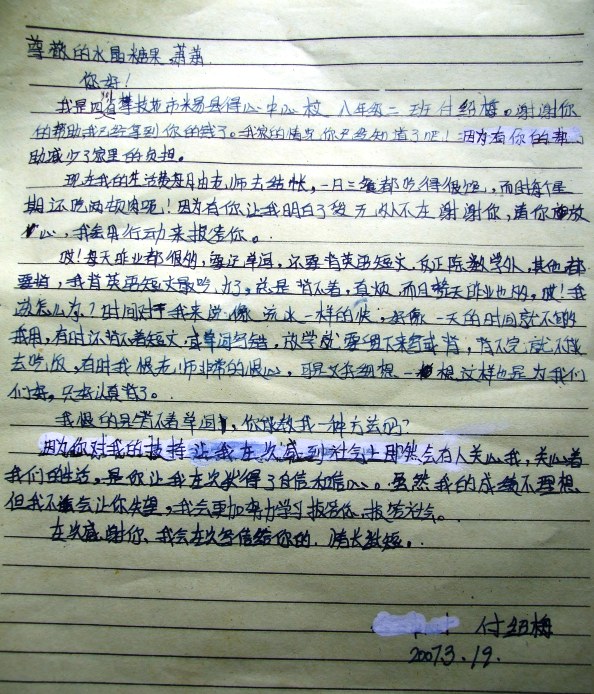 尊敬的水晶糖果、萧萧
你好!
我是四省攀枝花市米易县得心中心校 八年级二班付绍梅。谢谢你
的帮助我已经拿到你的钱了。我家的情况你已经知道了吧!因为有你的帮
助减少了家里的负担。
现在我的生活费每月由老师去结帐,一日三餐都吃得很饱,而时每个星
期还吃两顿肉呢!因为有你让我明白了 谢谢你,请你放
心,我会用行动来报答你。
哎!每天作业都很多,要记单词,还要背英语短文,反正除数学外,其他都
要背,我背英语短文最吃力了,总是背不着,真烦,而且每天作业也多,哎!我
该怎么办?时间对于我来说像流水一样的快,好像一天的时间就不够
我用,有时还背不着短文,或单词写错,放学就要留下来写或背,背不完就不能
去吃饭,有时我恨老师非常的狠心,可是又仔细想一想这样也是为我们
们好,只有认真背了。
我恨的是背不着单词,你能教我一种方法吗?
因为你对我的支持让我在次感到社会上既然会有人关心我,关心着
我们的生活,是你让我在次获得了自信和信心。虽然我的成绩不理想,
但我不会让你失望,我会更加努力学习报答你、报答社会。
在次感谢你、我会在次写信给你的。情长纸短。
付绍梅
2007.3.19.